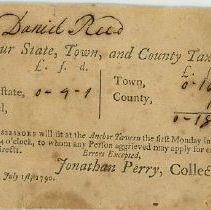 Daniel Reed
ur State, Town, and County Tax
£. s. d. £.
state, 0-4-1 Town, 0-10
d, County,
0-15
ASSESSORS will sit at the Anchor Tavern the first Monday in
4 o'clock, to whom any Person aggrieved may apply for
dress.
Errors Excepted,
Jonathan Perry, Collec
July 1st, 1790.